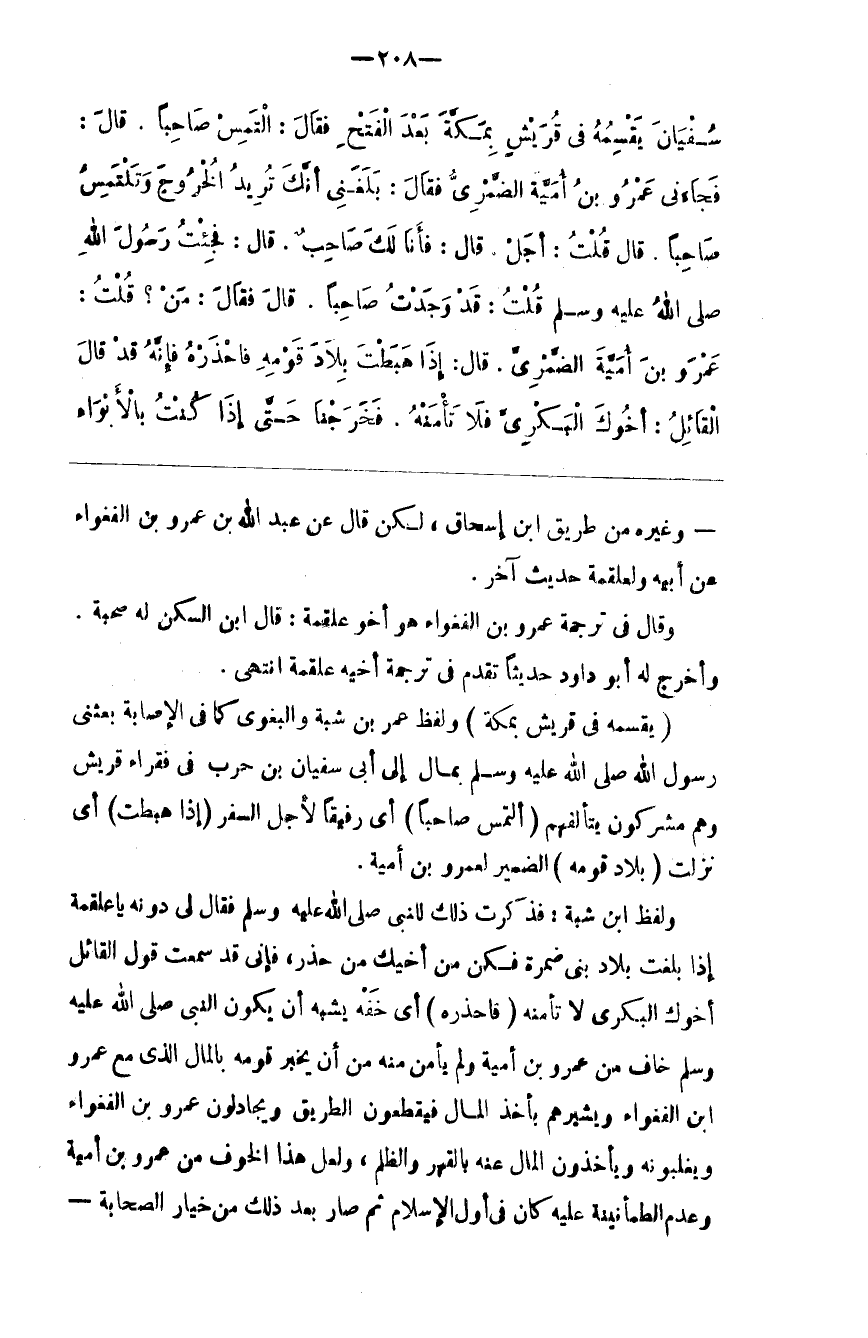 —٢٠٨—
سُفْيَانَ يَقْسِمُهُ فى قُرَيْشٍ بِمَكَّةَ بَعْدَ الْفَتْحِ فقَالَ : الْتَمِسْ صَاحِباً . قالَ :
فَجَاءَنى عَمْرُو بنُ أُمَيَّةَ الضَّمْرِىُّ فقالَ : بَلَغَنِى أَنَّكَ تُرِيدُ الْخُرُوجَ وَتَلْتَمِسُ
صَاحِباً . قال قُلْتُ : أَجَلْ . قال : فَأَنَا لَكَ صَاحِبٌ . قال : فَجِئْتُ رَسُولَ اللهِ
صلى اللهُ عليه وسلم قُلْتُ : قَدْ وَجَدْتُ صَاحِباً . قالَ فقَالَ : مَنْ ؟ قُلْتُ :
عَمْرَو بنَ أُمَيَّةَ الضَّمْرِىَّ . قال : إِذَا هَبَطْتَ بِلَادَ قَوْمِهِ فاحْذَرْهُ فإِنَّهُ قدْ قالَ
الْقَائِلُ : أَخُوكَ الْبَكْرِىَّ فَلَا تَأْمَنْهُ . فَخَرَجْنَا حَتَّى إِذَا كُنْتُ بالْأَبْوَاء
— وغيره من طريق ابن إسحاق ، لكن قال عن عبد الله بن عمرو بن الفغواء
عن أبيه ولعلقمة حديث آخر .
وقال فى ترجمة عمرو بن الفغواء هو أخو علقمة : قال ابن السكن له صحبة .
وأخرج له أبو داود حديثاً تقدم فى ترجمة أخيه علقمة انتهى .
( يقسمه فى قريش بمكة ) ولفظ عمر بن شبة والبغوى كما فى الإصابة بعثنى
رسول الله صلى الله عليه وسلم بمال إلى أبى سفيان بن حرب فى فقراء قريش
وهم مشركون يتألفهم ( ألتمس صاحباً ) أى رفيقاً لأجل السفر ( إذا هبطت ) أى
نزلت ( بلاد قومه ) الضمير لعمرو بن أمية .
ولفظ ابن شبة : فذكرت ذلك للنبى صلى الله عليه وسلم فقال لى دونه ياعلقمة
إذا بلغت بلاد بنى ضمرة فكن من أخيك من حذر، فإنى قد سمعت قول القائل
أخوك البكرى لا تأمنه ( فاحذره ) أى خَفْه يشبه أن يكون النبى صلى الله عليه
وسلم خاف من عمرو بن أمية ولم يأمن منه من أن يخبر قومه بالمال الذى مع عمرو
ابن الفغواء ويشيرهم بأخذ المال فيقطعون الطريق ويجادلون عمرو بن الفغواء
ويغلبونه ويأخذون المال عنه بالقهر والظلم ، ولعل هذا الخوف من عمرو بن أمية
وعدم الطمأنينة عليه كان فى أول الإسلام ثم صار بعد ذلك من خيار الصحابة —